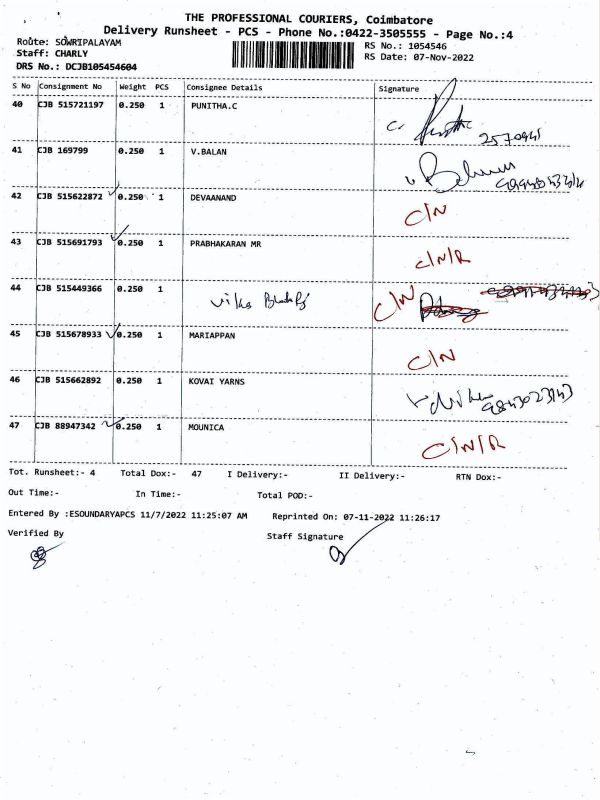 THE PROFESSIONAL COURIERS, Coimbatore
Delivery Runsheet - PCS - Phone No.:0422-3505555 - Page No.:4
Route: SOWRIPALAYAM
RS No.: 1054546
Staff: CHARLY
RS Date: 07-Nov-2022
DRS No.: DCJB105454604
S No Consignment No Weight PCS Consignee Details Signature
40 CJB 515721197 0.250 1 PUNITHA.C
41 CJB 169799 0.250 1 V.BALAN
42 CJB 515622872 0.250 1 DEVAANAND C/N
43 CJB 515691793 0.250 1 PRABHAKARAN MR C/N/R
44 CJB 515449366 0.250 1 C/N
45 CJB 515678933 0.250 1 MARIAPPAN C/N
46 CJB 515662892 0.250 1 KOVAI YARNS
47 CJB 88947342 0.250 1 MOUNICA C/N/R
Tot. Runsheet:- 4 Total Dox:- 47 I Delivery:- II Delivery:- RTN Dox:-
Out Time:- In Time:- Total POD:-
Entered By :ESOUNDARYAPCS 11/7/2022 11:25:07 AM Reprinted On: 07-11-2022 11:26:17
Verified By Staff Signature